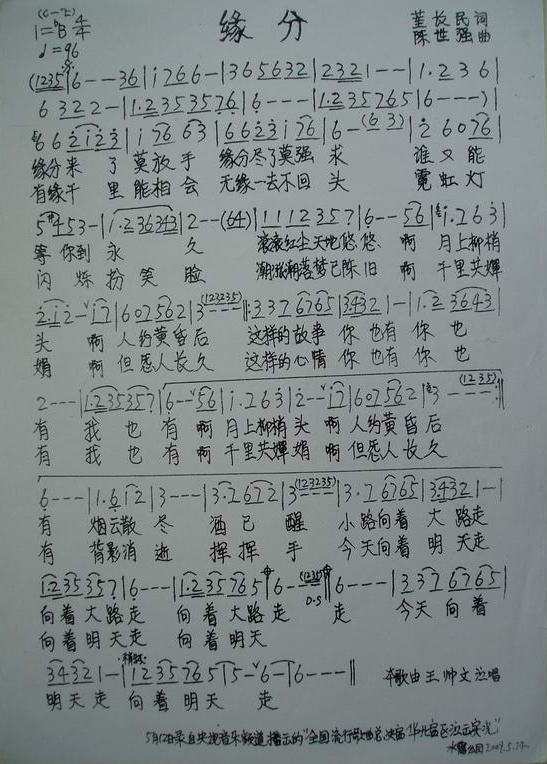 (C-♭E)
1=♭B 4/4 缘分 董长民 词
♩=96 陈世强 曲
(1235|6---36|i766-|365632|2321--|1.236|
6322-|1.2353576|6---|1.235765|6---)|
662i23|i7663|6623i76|6-(63)|26076|
缘分来 了莫放手 缘分尽了莫强 求 谁又能
有缘千 里能相会 无缘一去不回 头 霓虹灯
5#453-|1.236343|2--(64)|1112357|6--56|i.763|
等你到 永 久 滚滚红尘天地悠悠 啊 月上柳梢
闪烁扮笑 脸 潮涨潮落梦已陈旧 啊 千里共婵
2.i2-i7|607562|3(123235)|:3376765|3432 1-|1.23643|
头 啊 人约黄昏后 这样的故事 你也有 你 也
娟 啊 但愿人长久 这样的心情 你也有 你 也
2---|1.235357|6--56|i.763|2--i7|607562|3---(1235):|
有 我也有 啊 月上柳梢头 啊 人约黄昏后
有 我也有 啊 千里共婵娟 啊 但愿人长久
6---|1.612|3---|3.7672|3(123235)|3.76765|3432|-|
有 烟云散 尽 酒已 醒 小路向着 大路走
有 背影消 逝 挥挥 手 今天向着 明天走
1235357|6---|1.235765|6-(1235)|6---|3376765|
D.S
向着大路走 向着大路走 走 今天向着
向着明天走 向着明天
34321-|1235765|5-6-|6---|| 本歌由王帅文演唱
明天走 向着明天 走
5月12日录自央视音乐频道播出的"全国流行歌曲总决赛华北赛区演出实况"
2009.5.14.